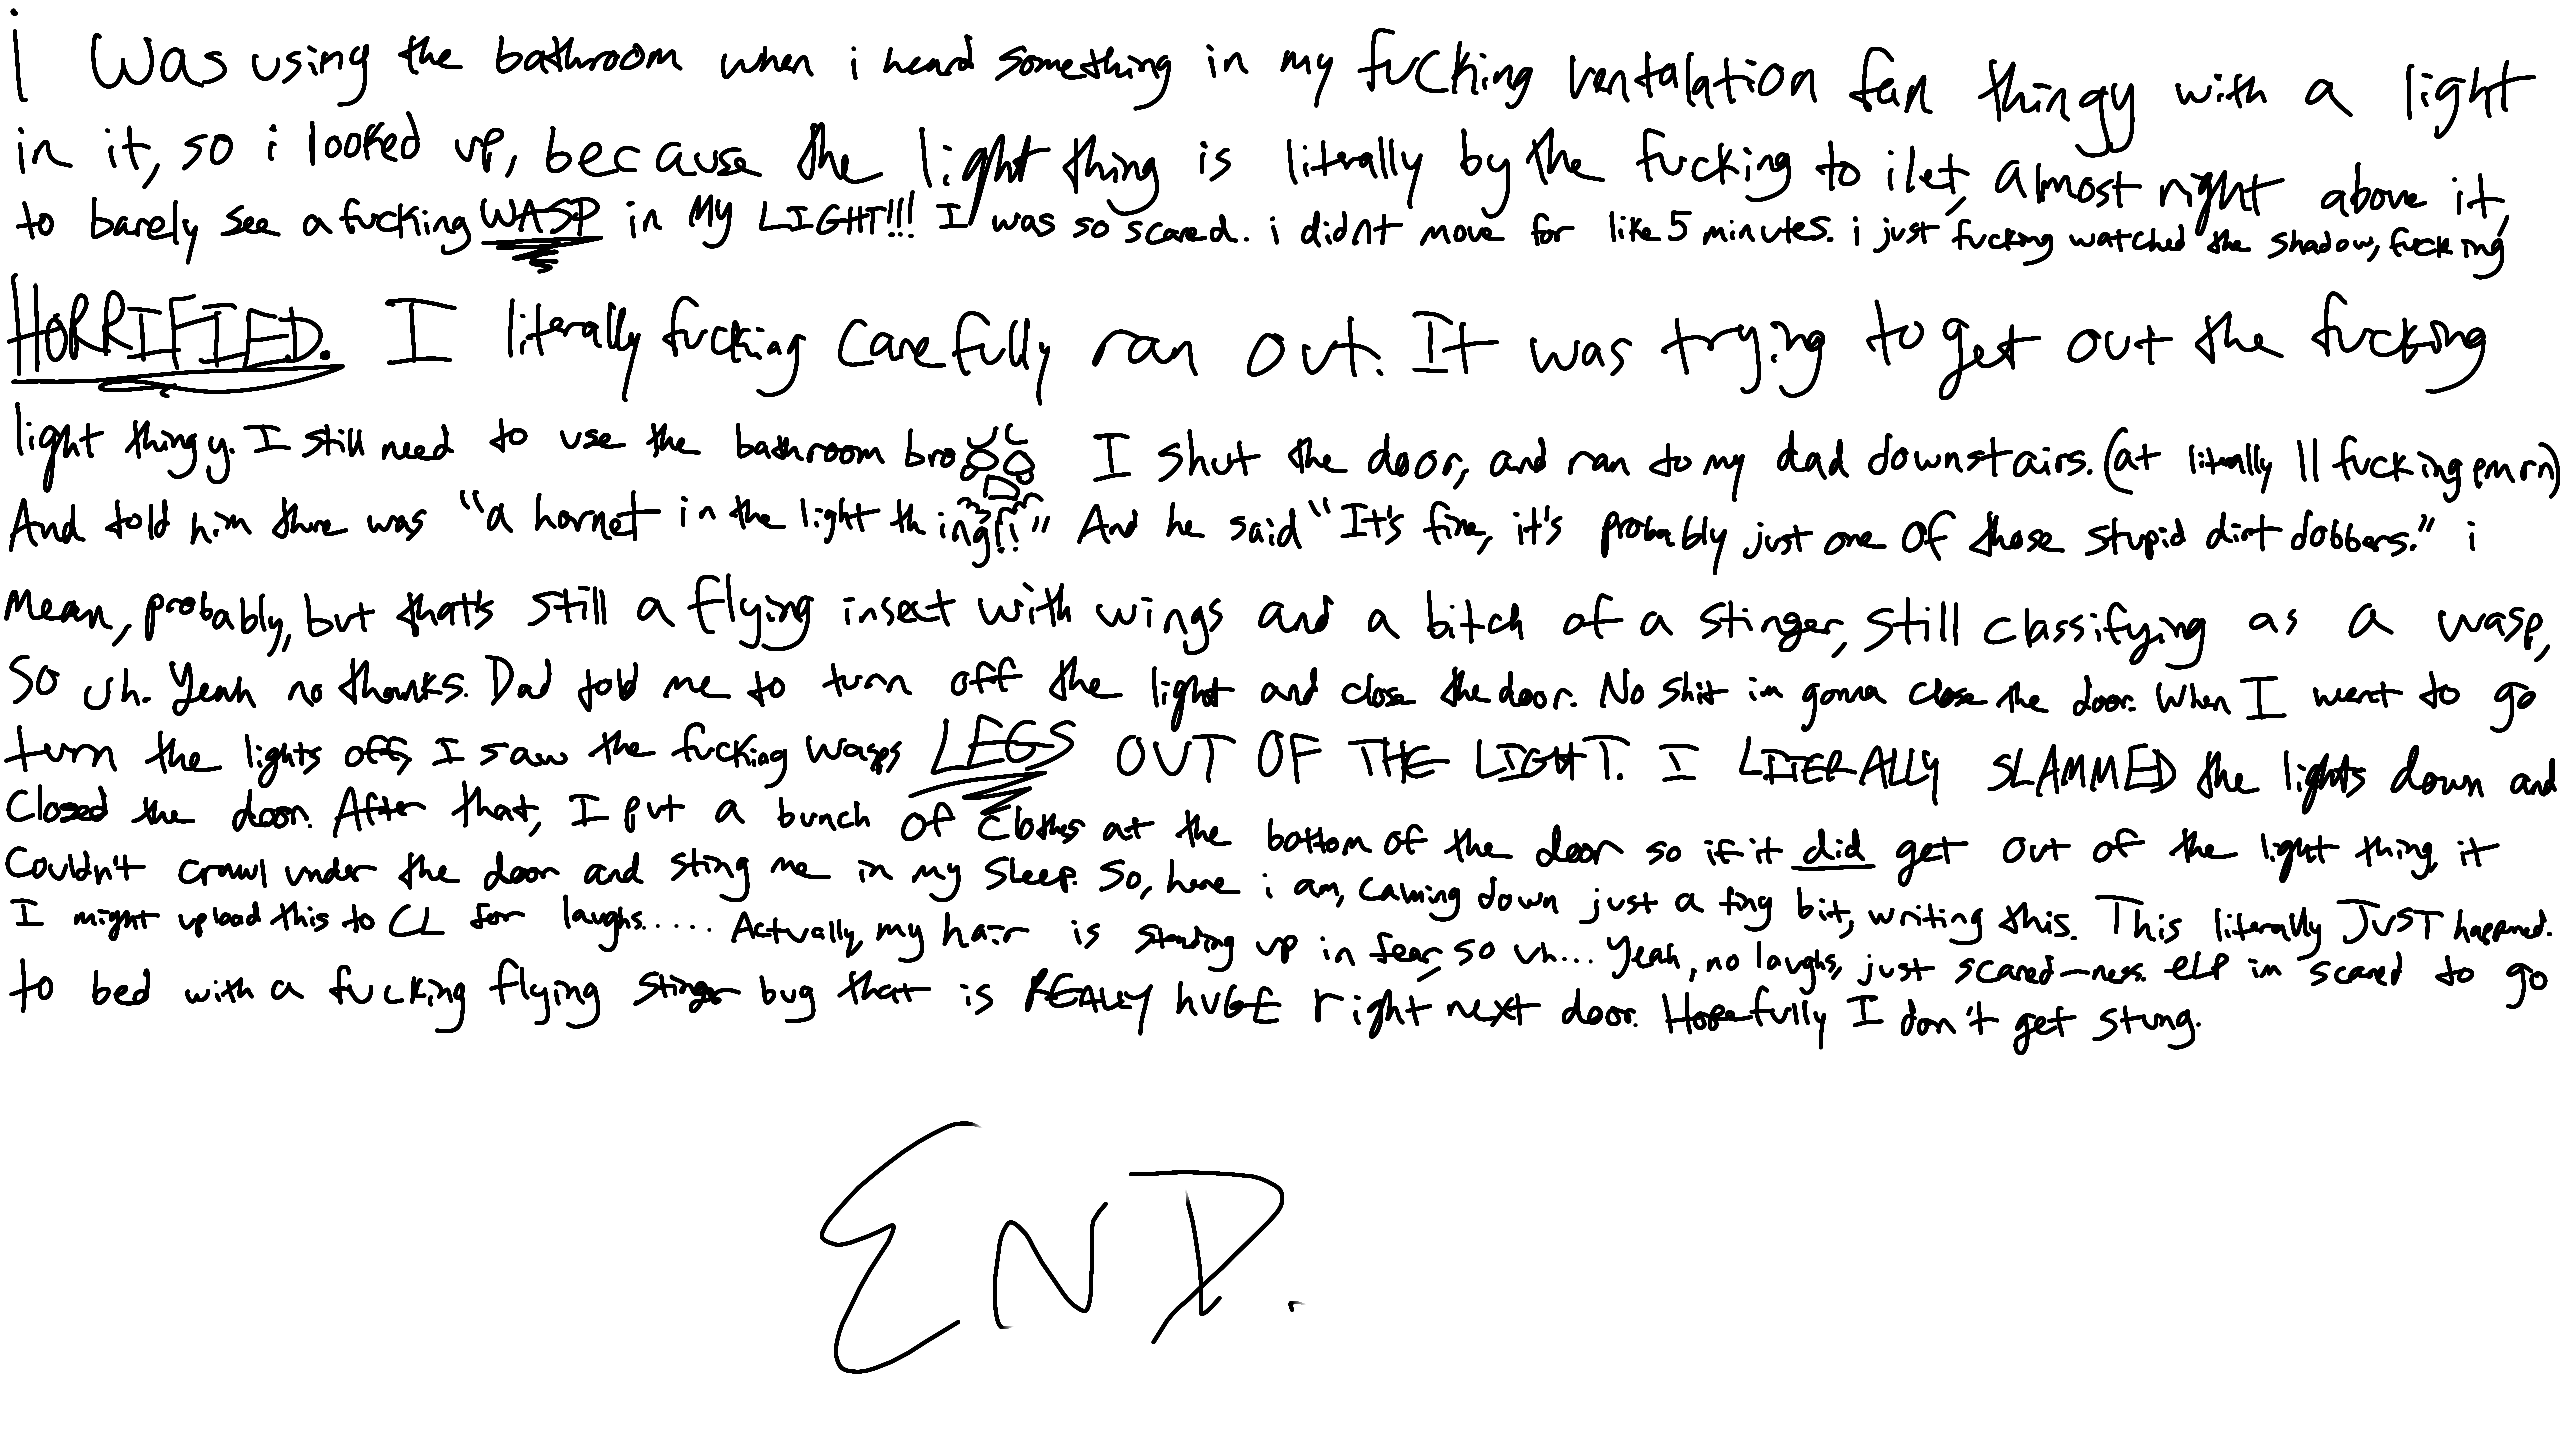 i was using the bathroom when i heard something in my fucking ventalation fan thingy with a light
in it, so i looked up, because the light thing is literally by the fucking toilet, almost right above it,
to barely see a fucking WASP in MY LIGHT!!! I was so scared. i didn't move for like 5 minutes. i just fucking watched the shadow, fucking
HORRIFIED. I literally fucking carefully ran out. It was trying to get out the fucking
light thingy. I still need to use the bathroom bro I shut the door, and ran to my dad downstairs. (at literally 11 fucking pm rn)
And told him there was "a hornet in the light thing!!" And he said "It's fine, it's probably just one of those stupid dirt dobbers." i
mean, probably, but that's still a flying insect with wings and a bitch of a stinger, still classifying as a wasp,
so uh. Yeah no thanks. Dad told me to turn off the light and close the door. No shit im gonna close the door. When I went to go
turn the lights off, I saw the fucking wasps LEGS OUT OF THE LIGHT. I LITERALLY SLAMMED the lights down and
closed the door. After that, I put a bunch of clothes at the bottom of the door so if it did get out of the light thing, it
couldn't crawl under the door and sting me in my sleep. So, here i am, calming down just a tiny bit, writing this. This literally JUST happened.
I might upload this to CL for laughs..... Actually, my hair is standing up in fear, so uh... Yeah, no laughs, just scared-ness. elp im scared to go
to bed with a fucking flying stinger bug that is REALLY HUGE right next door. Hopefully I don't get stung.
END.